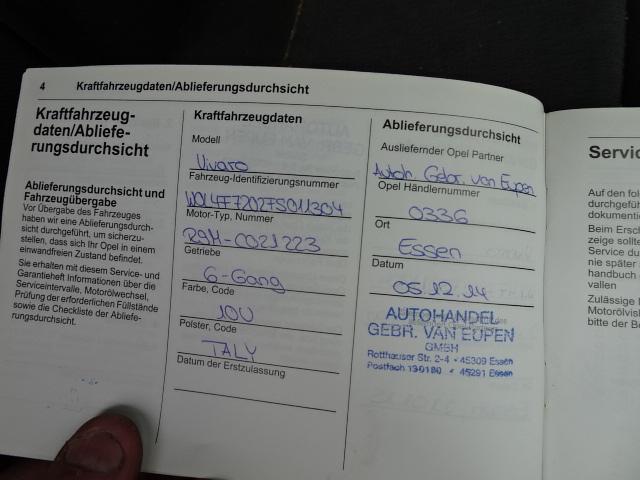 4 Kraftfahrzeugdaten/Ablieferungsdurchsicht
Kraftfahrzeug-
daten/Abliefe-
rungsdurchsicht
Ablieferungsdurchsicht und
Fahrzeugübergabe
Vor Übergabe des Fahrzeuges
haben wir eine Ablieferungsdurch-
sicht durchgeführt, um sicherzu-
stellen, dass sich Ihr Opel in einem
einwandfreien Zustand befindet.
Sie erhalten mit diesem Service- und
Garantieheft Informationen über die
Serviceintervalle, Motorölwechsel,
Prüfung der erforderlichen Füllstände
sowie die Checkliste der Abliefe-
rungsdurchsicht.
Kraftfahrzeugdaten
Modell
Vivaro
Fahrzeug-Identifizierungsnummer
W0L4F772027S011304
Motor-Typ, Nummer
R9M-C021223
Getriebe
6-Gang
Farbe, Code
10U
Polster, Code
TALY
Datum der Erstzulassung
Ablieferungsdurchsicht
Ausliefernder Opel Partner
Autoh. Gebr. van Eupen
Opel Händlernummer
0336
Ort
Essen
Datum
05.12.14
AUTOHANDEL
GEBR. VAN EUPEN
GMBH
Rotthauser Str. 2-4 • 45309 Essen
Postfach 130180 • 45291 Essen
Servic
Auf den fol
durchgeführ
dokumenti
Beim Ersch
zeige sollte
Service du
nie später
handbuch
vallen
Zulässige
Motorölvis
bitte der Be